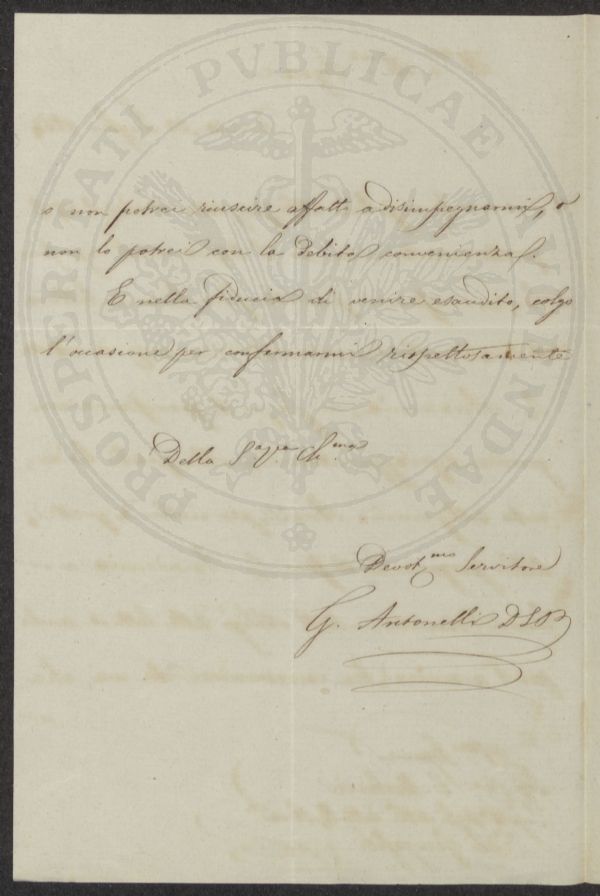 o non potrei riuscire affatto a disimpegnarmi, o
non lo potrei con la debita convenienza.
E nella fiducia di venire esaudito, colgo
l'occasione per confermarmi rispettosamente
Della S. Ch.ma
Devot.mo Servitore
G. Antonelli
PROSPERITATI PVBLICAE AVGENDAE